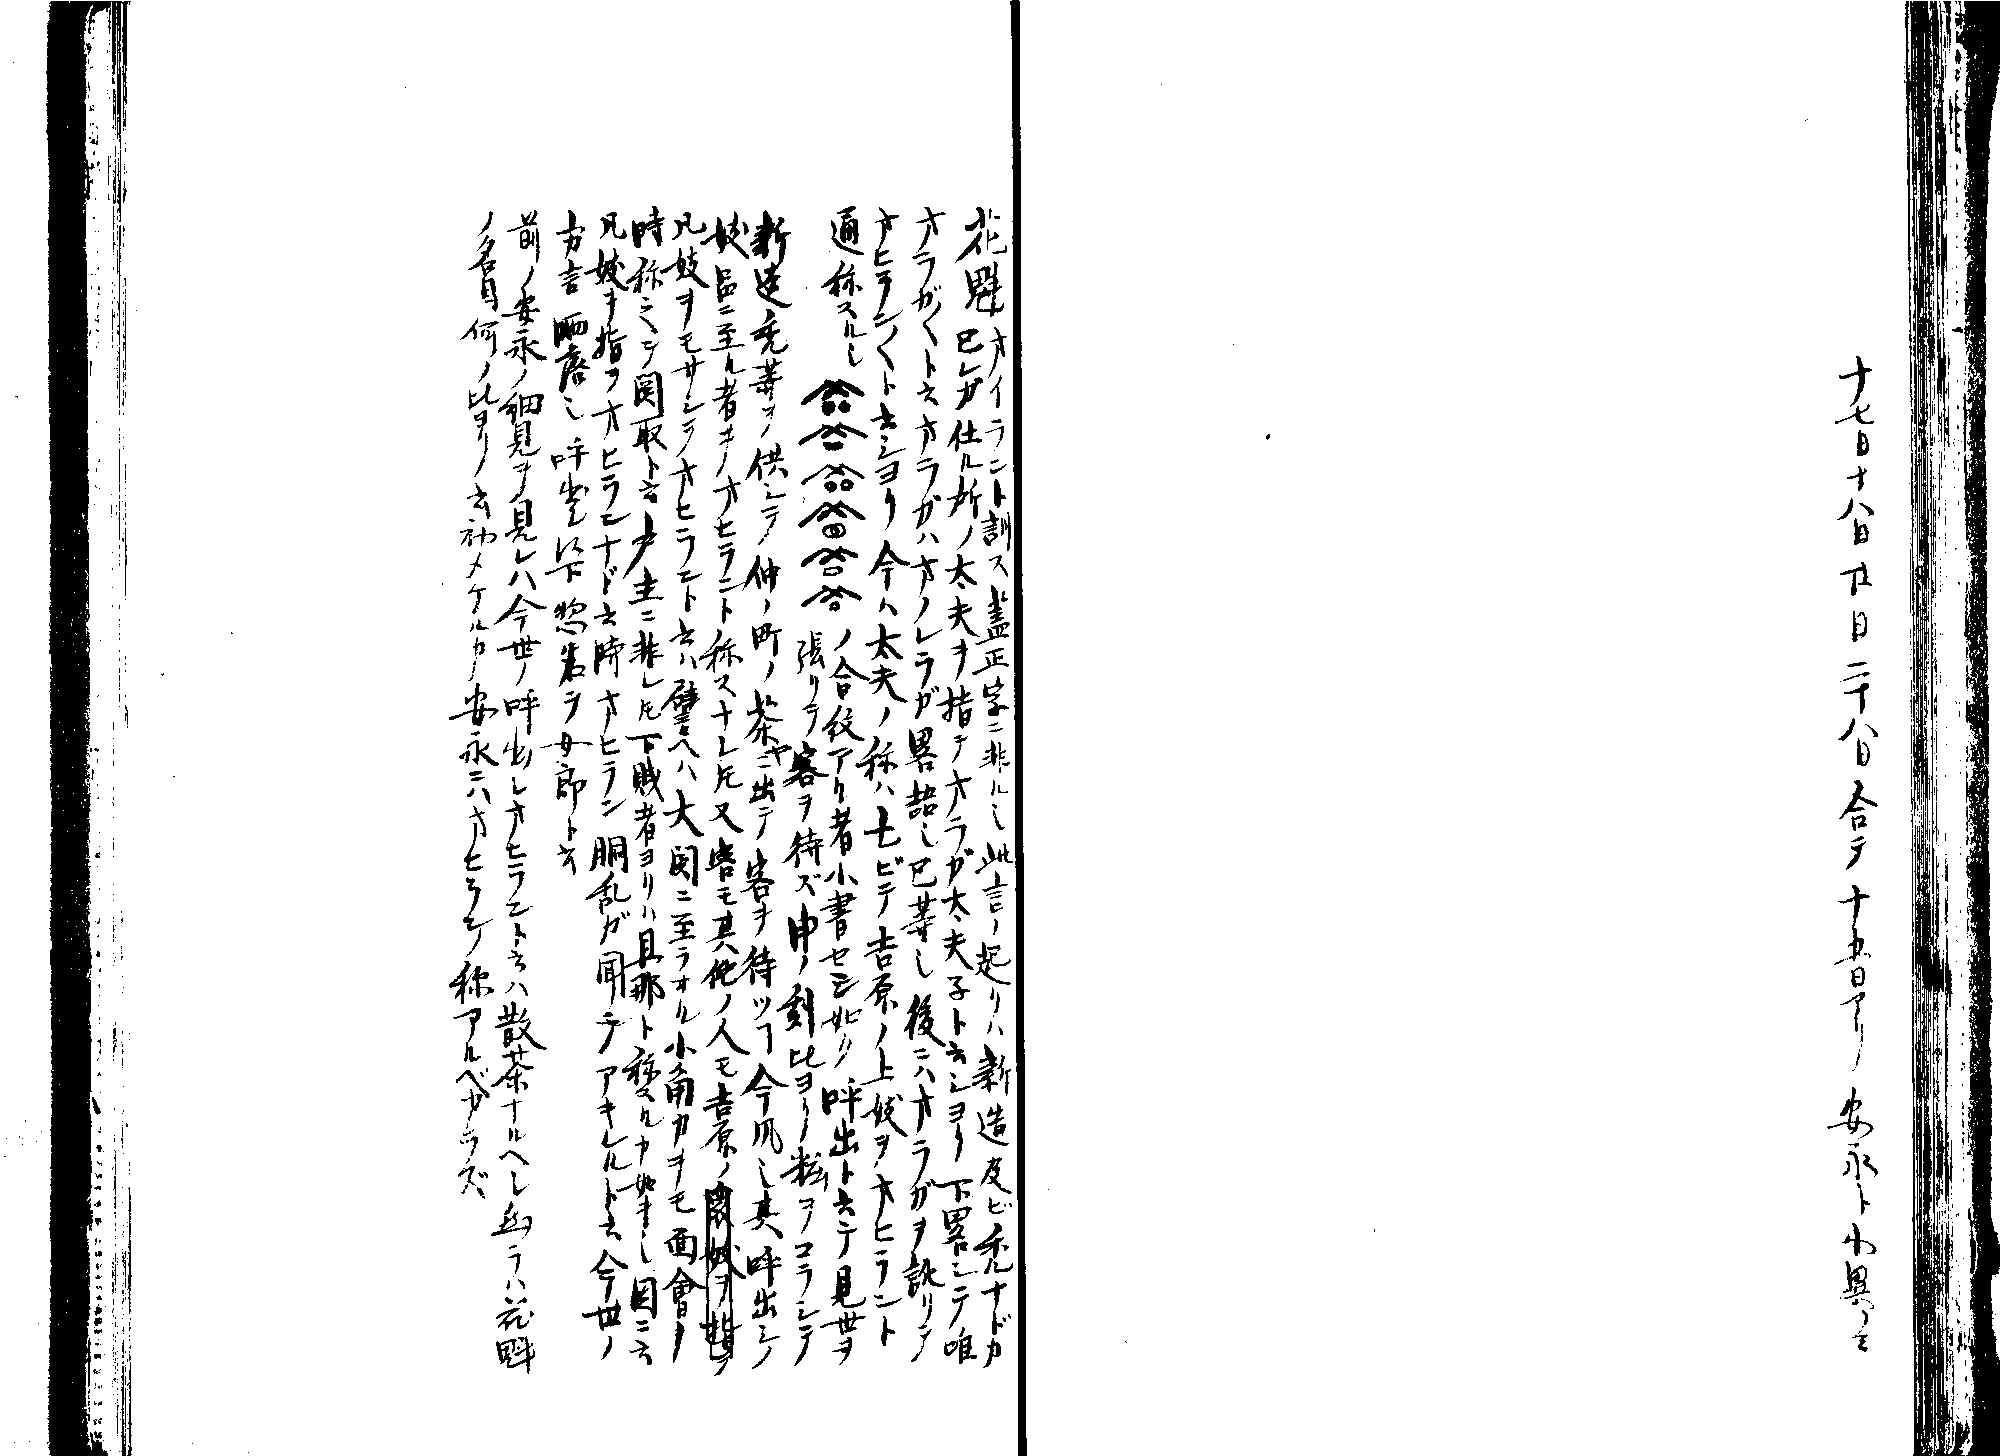 十七日十八日廿日二十八日合テ十五日アリ安永ト小異アミ
花魁オイラント訓ス蓋正字ニ非ル也此言ノ起リハ新造及ビ禿ナドカ
己レガ仕ル所ノ太夫ヲ指テオラガ太夫子ト云シヨリ下畧シテ唯
オラガ〱ト云オラガハオノレラガ畧語也己等也後ニハオラガヲ訛リテ
オヒラン〱ト云シヨリ今ハ太夫ノ称ハ亡ビテ吉原ノ上妓ヲオヒラント
通称スル也
ノ合紋アリ者小書セシ如ク呼出ト云テ見世ヲ
張リテ客ヲ待ズ申ノ刻比ヨリ粧ヲコラシテ
新造禿等ヲ供シテ仲ノ町ノ茶ヤニ出テ客ヲ待ツヿ今風也其呼出シノ
妓品ニ至ル者ヲオヒラント称スナレ𪜈又客モ其他ノ人モ吉原ノ
凡妓ヲモサシテオヒラント云ハ譬ヘハ大関ニ至ラザル小角力ヲモ面會ノ
時称シテ関取ト云戸主ニ非レ𪜈下賎者ヨリハ旦那ト称スルカ如キ也因ニ云
凡妓ヲ指ヲオヒランナド云時オヒラン胴乱ガ聞テアキレルト云今世ノ
方言洒落也呼出以下惣名ヲ女郎ト云
前ノ安永ノ細見ヲ見レハ今世ノ呼出シオヒラント云ハ散茶ナルヘシ然ラハ花魁
ノ名目何ノ比ヨリノ云初メケルカ安永ニハオヒランノ称アルベカラズ